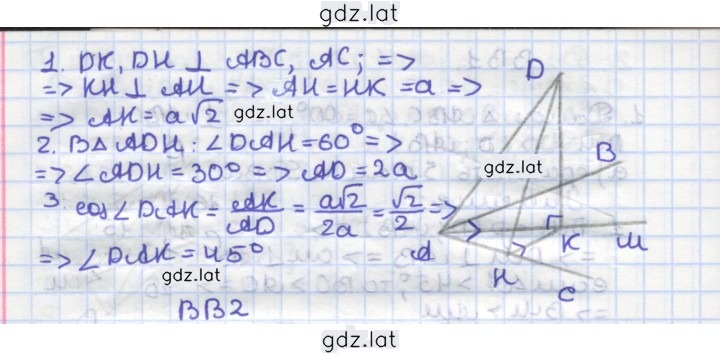 gdz.lat
1. DK, DH ⊥ ABC, AC; =>
=> KH ⊥ AH => AH = HK = a =>
=> AK = a√2
gdz.lat
2. В △ ADH: ∠DAH = 60° =>
=> ∠ADH = 30° => AD = 2a
3. cos∠DAK = AK/AD = a√2/2a = √2/2 =>
=> ∠DAK = 45°
gdz.lat
ВВ2
D
gdz.lat
B
A
K
M
H
C
gdz.lat